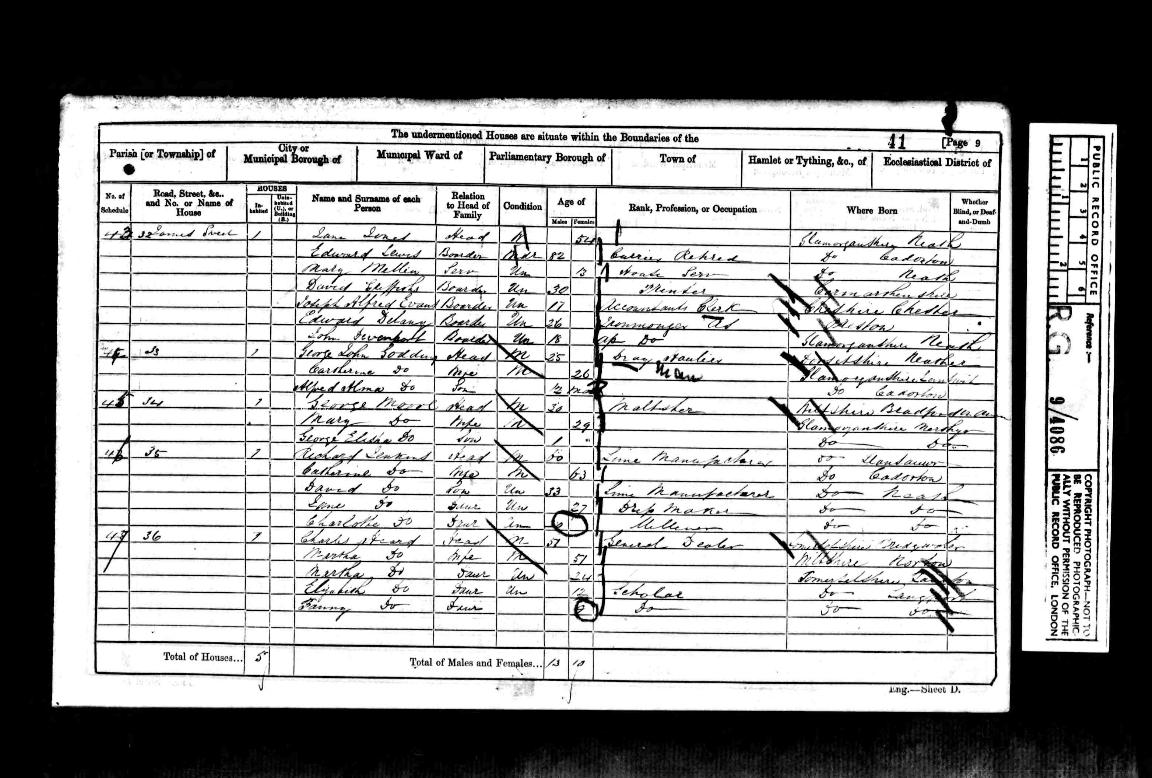 The undermentioned Houses are situate within the Boundaries of the
41
[Page 9
Parish [or Township] of
City or Municipal Borough of
Municipal Ward of
Parliamentary Borough of
Town of
Hamlet or Tything, &c., of
Ecclesiastical District of
No. of Schedule
Road, Street, &c., and No. or Name of House
HOUSES
In-habited
Unin-habited (U.), or Building (B.)
Name and Surname of each Person
Relation to Head of Family
Condition
Age of
Males
Females
Rank, Profession, or Occupation
Where Born
Whether Blind, or Deaf-and-Dumb
43 32 James Street 1 Jones Head 54 Glamorganshire Neath
Edward Lewis Boarder 82 Currier Retired Do Cadoxton
Mary Serv Un 13 House Serv Do Neath
David Boarder Un 30 Carmarthenshire
Joseph Alfred Evans Boarder Un 17 Accountants Clerk Cheshire Chester
Edward Delany Boarder Un 26 Ironmonger
John Devenport Boarder Un 18 Do Glamorganshire Neath
33 1 George John Godding Head M 25 Dray Haulier Man
Catherine Do Wife M 26 Glamorganshire
Alfred Alma Do Son Do Cadoxton
45 34 1 George Head M 30 Maltster Wiltshire
Mary Do Wife M 29 Glamorganshire Merthyr
George Elisha Do Son 1 Do Do
46 35 1 Richard Jenkins Head M 60 Lime Manufacturer Do
Catherine Do Wife M 63 Do Cadoxton
David Do Son Un 33 Lime Manufacturer Do Neath
Jane Do Daur Un 27 Dress Maker Do Do
Charlotte Do Daur Un Milliner Do Do
47 36 1 Charles Heard Head M 51 General Dealer Bridgwater
Martha Do Wife M 51 Wiltshire
Martha Do Daur Un 24 Somersetshire
Elizabeth Do Daur Un 12 Scholar Do
Fanny Do Daur Do Do Do
Total of Houses... 5
Total of Males and Females... 13 10
Eng.—Sheet D.
PUBLIC RECORD OFFICE
1 2 3 4 5 6
Reference:—
R.G. 9/4086
COPYRIGHT PHOTOGRAPH—NOT TO BE REPRODUCED PHOTOGRAPHICALLY WITHOUT PERMISSION OF THE PUBLIC RECORD OFFICE, LONDON